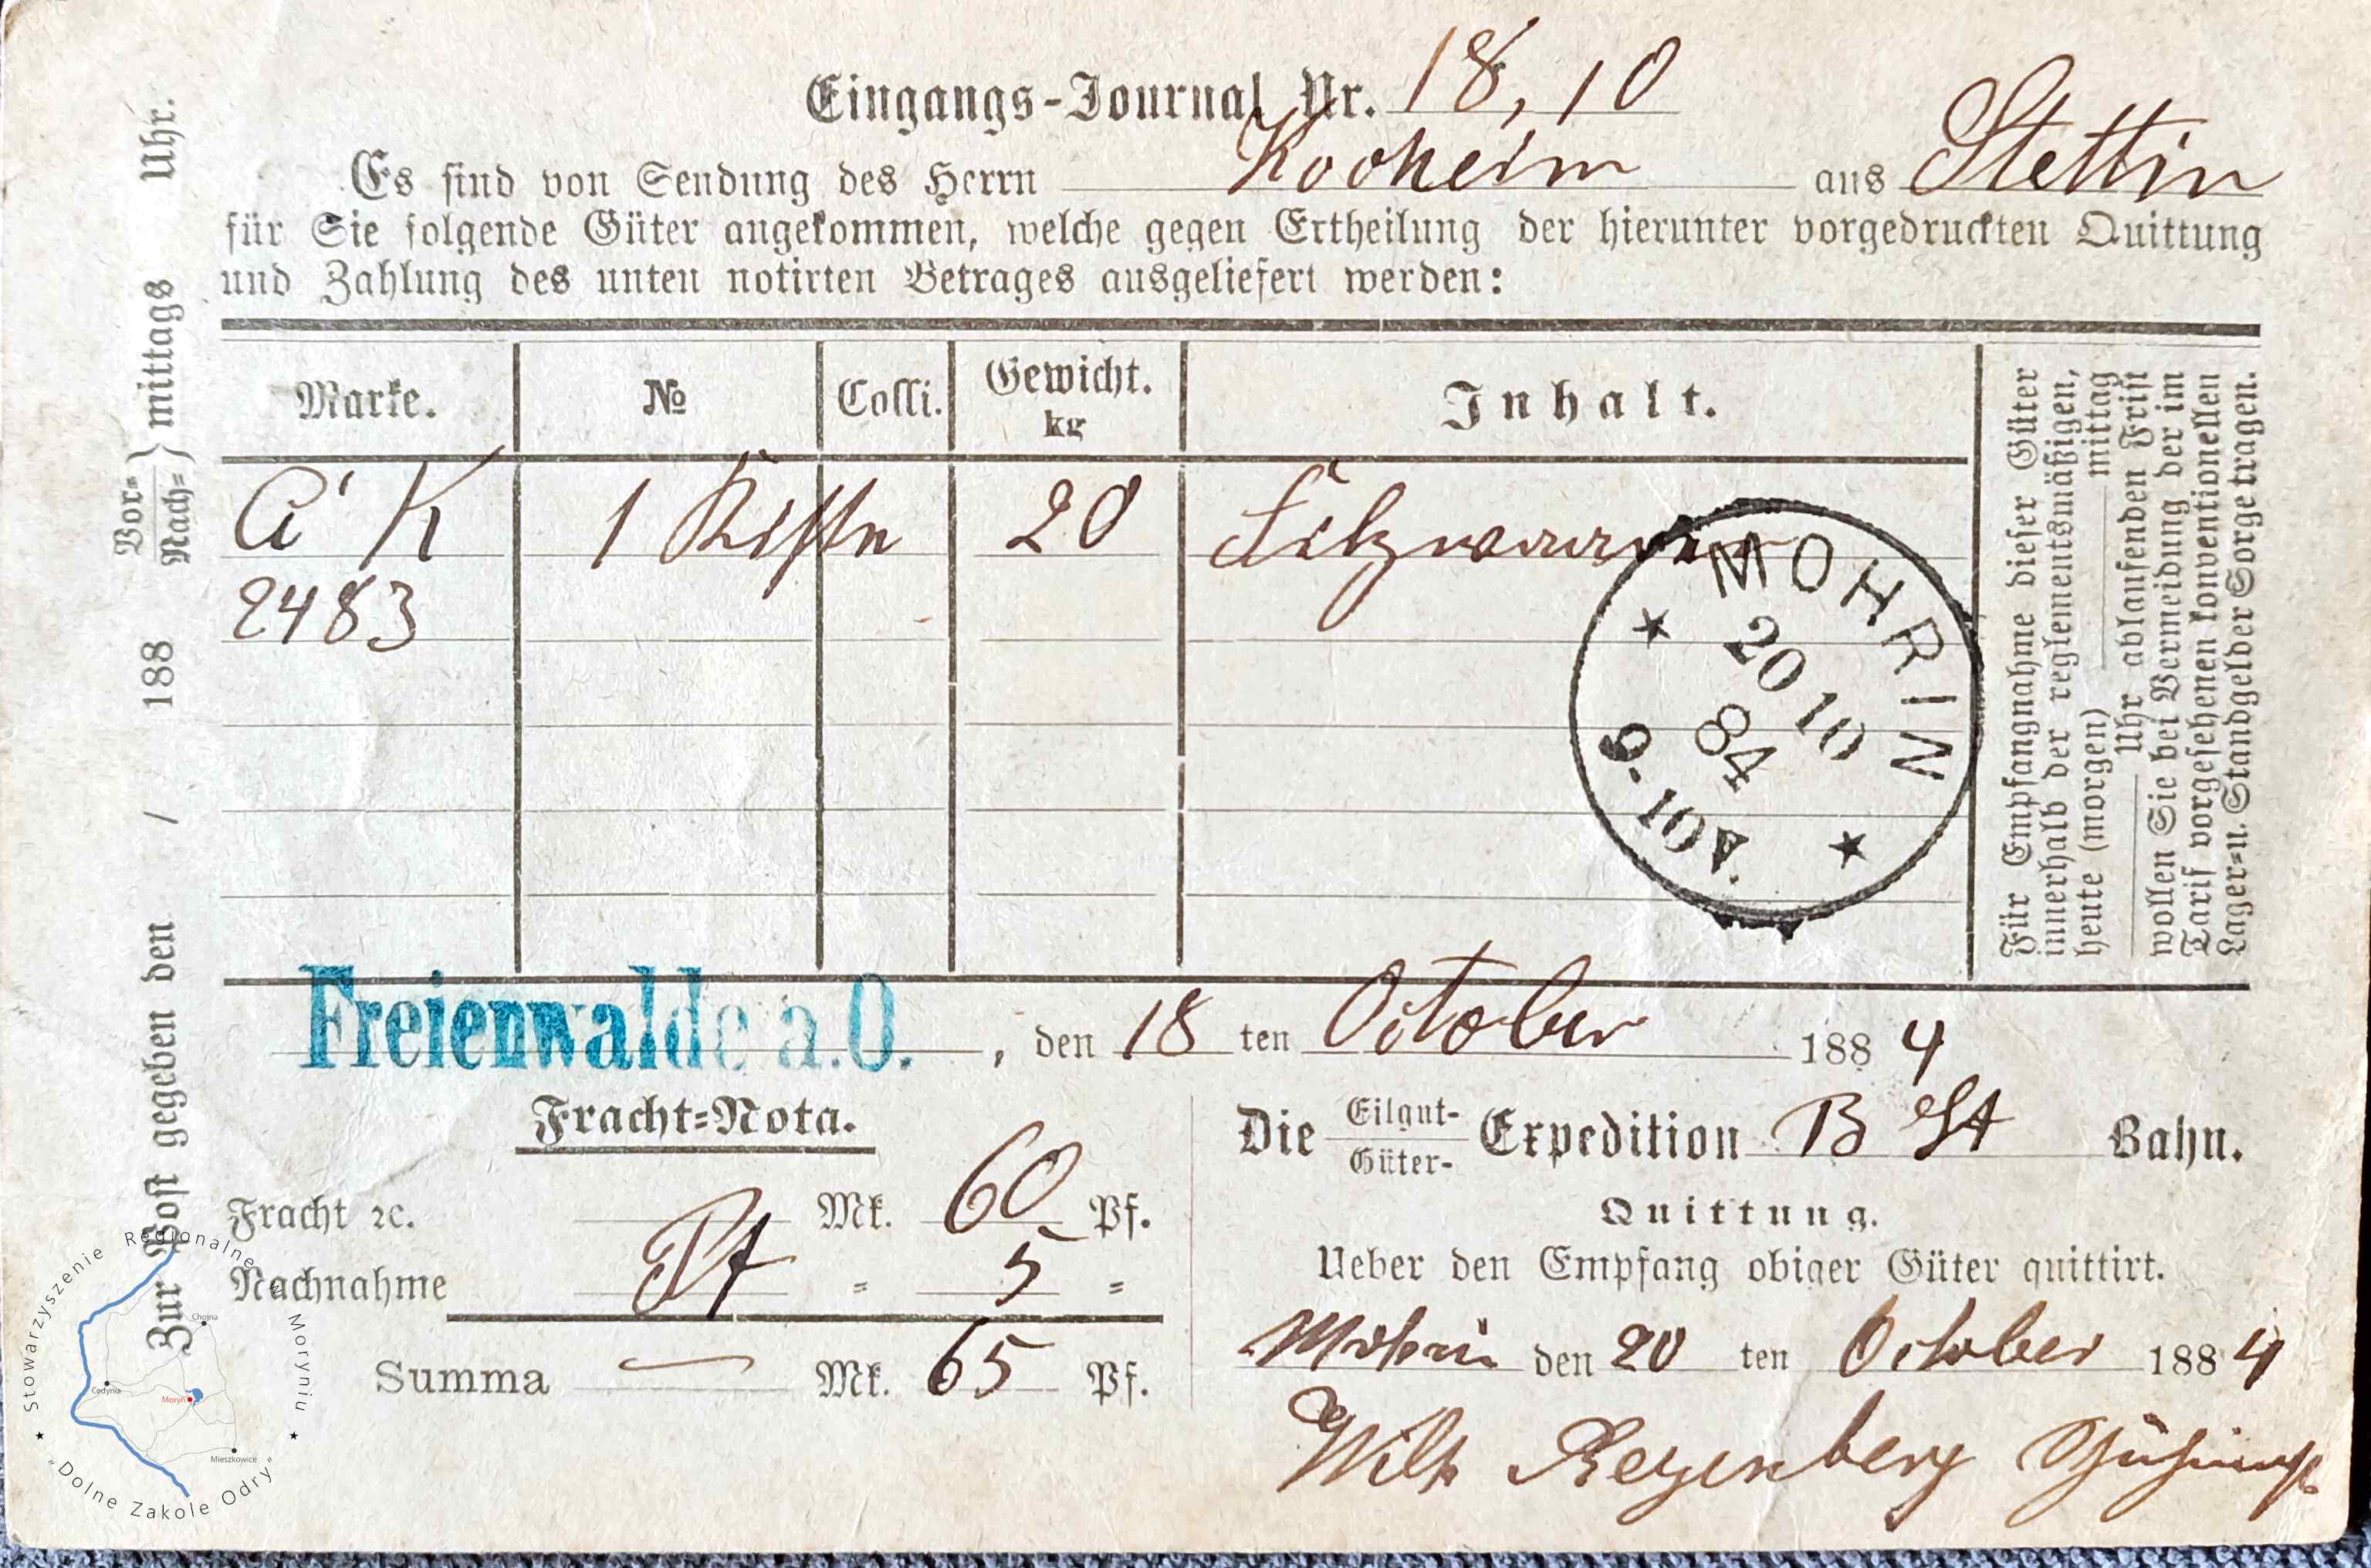 Eingangs-Journal Nr. 18, 10
Es sind von Sendung des Herrn Kooheim aus Stettin
für Sie folgende Güter angekommen, welche gegen Ertheilung der hierunter vorgedruckten Quittung
und Zahlung des unten notirten Betrages ausgeliefert werden:
Marke. № Colli. Gewicht. kg Inhalt.
A K 1 Kiste 20 Filzwaaren
2483
MOHRIN
20 10
84
9-10V.
Für Empfangnahme dieser Güter
innerhalb der reglementsmäßigen,
heute (morgen) mittag
Uhr ablaufenden Frist
wollen Sie bei Vermeidung der im
Tarif vorgesehenen konventionellen
Lager- u. Standgelder Sorge tragen.
Zur Post gegeben den / 188 Vor- Nach- mittags Uhr.
Freienwalde a.O., den 18 ten October 1884
Fracht-Nota.
Die Eilgut- Güter- Expedition B St Bahn.
Fracht ꝛc. Mk. 60 Pf.
Nachnahme Pf = 5 =
Summa — Mk. 65 Pf.
Quittung.
Ueber den Empfang obiger Güter quittirt.
Mohrin den 20 ten October 1884
Wilh Regenberg
Stowarzyszenie Regionalne w Moryniu
"Dolne Zakole Odry"
Chojna
Cedynia
Moryń
Mieszkowice